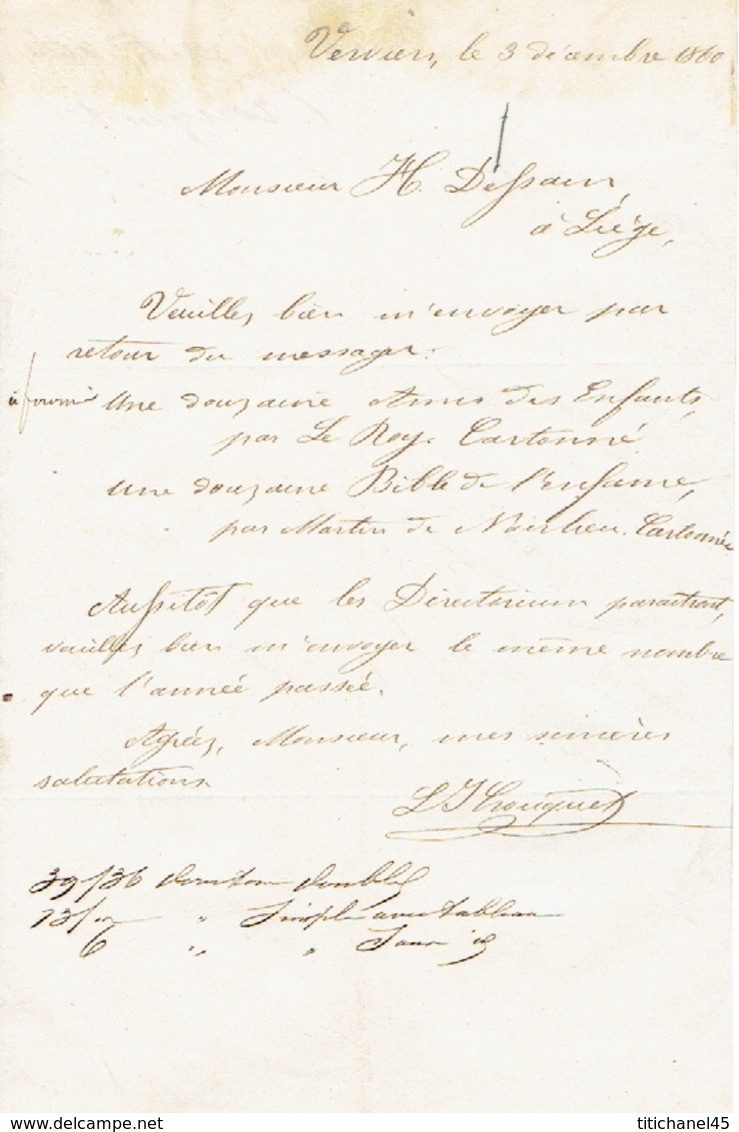 Verviers, le 3 décembre 1860
Monsieur H. Dessain,
à Liège,
Veuillez bien m'envoyer par
retour du messager:
à fournir Une douzaine Amis des Enfants,
par Le Roy. Cartonné
Une douzaine Bible de l'enfance,
par Martin de Noirlieu. Cartonnée
Aussitôt que les Directorium paraitront,
veuillez bien m'envoyer le même nombre
que l'année passée.
Agréez, Monsieur, mes sincères
salutations
39/36 Double
13/12 " Simple avec tableau
6 " " Sans id
www.delcampe.net
titichanel45